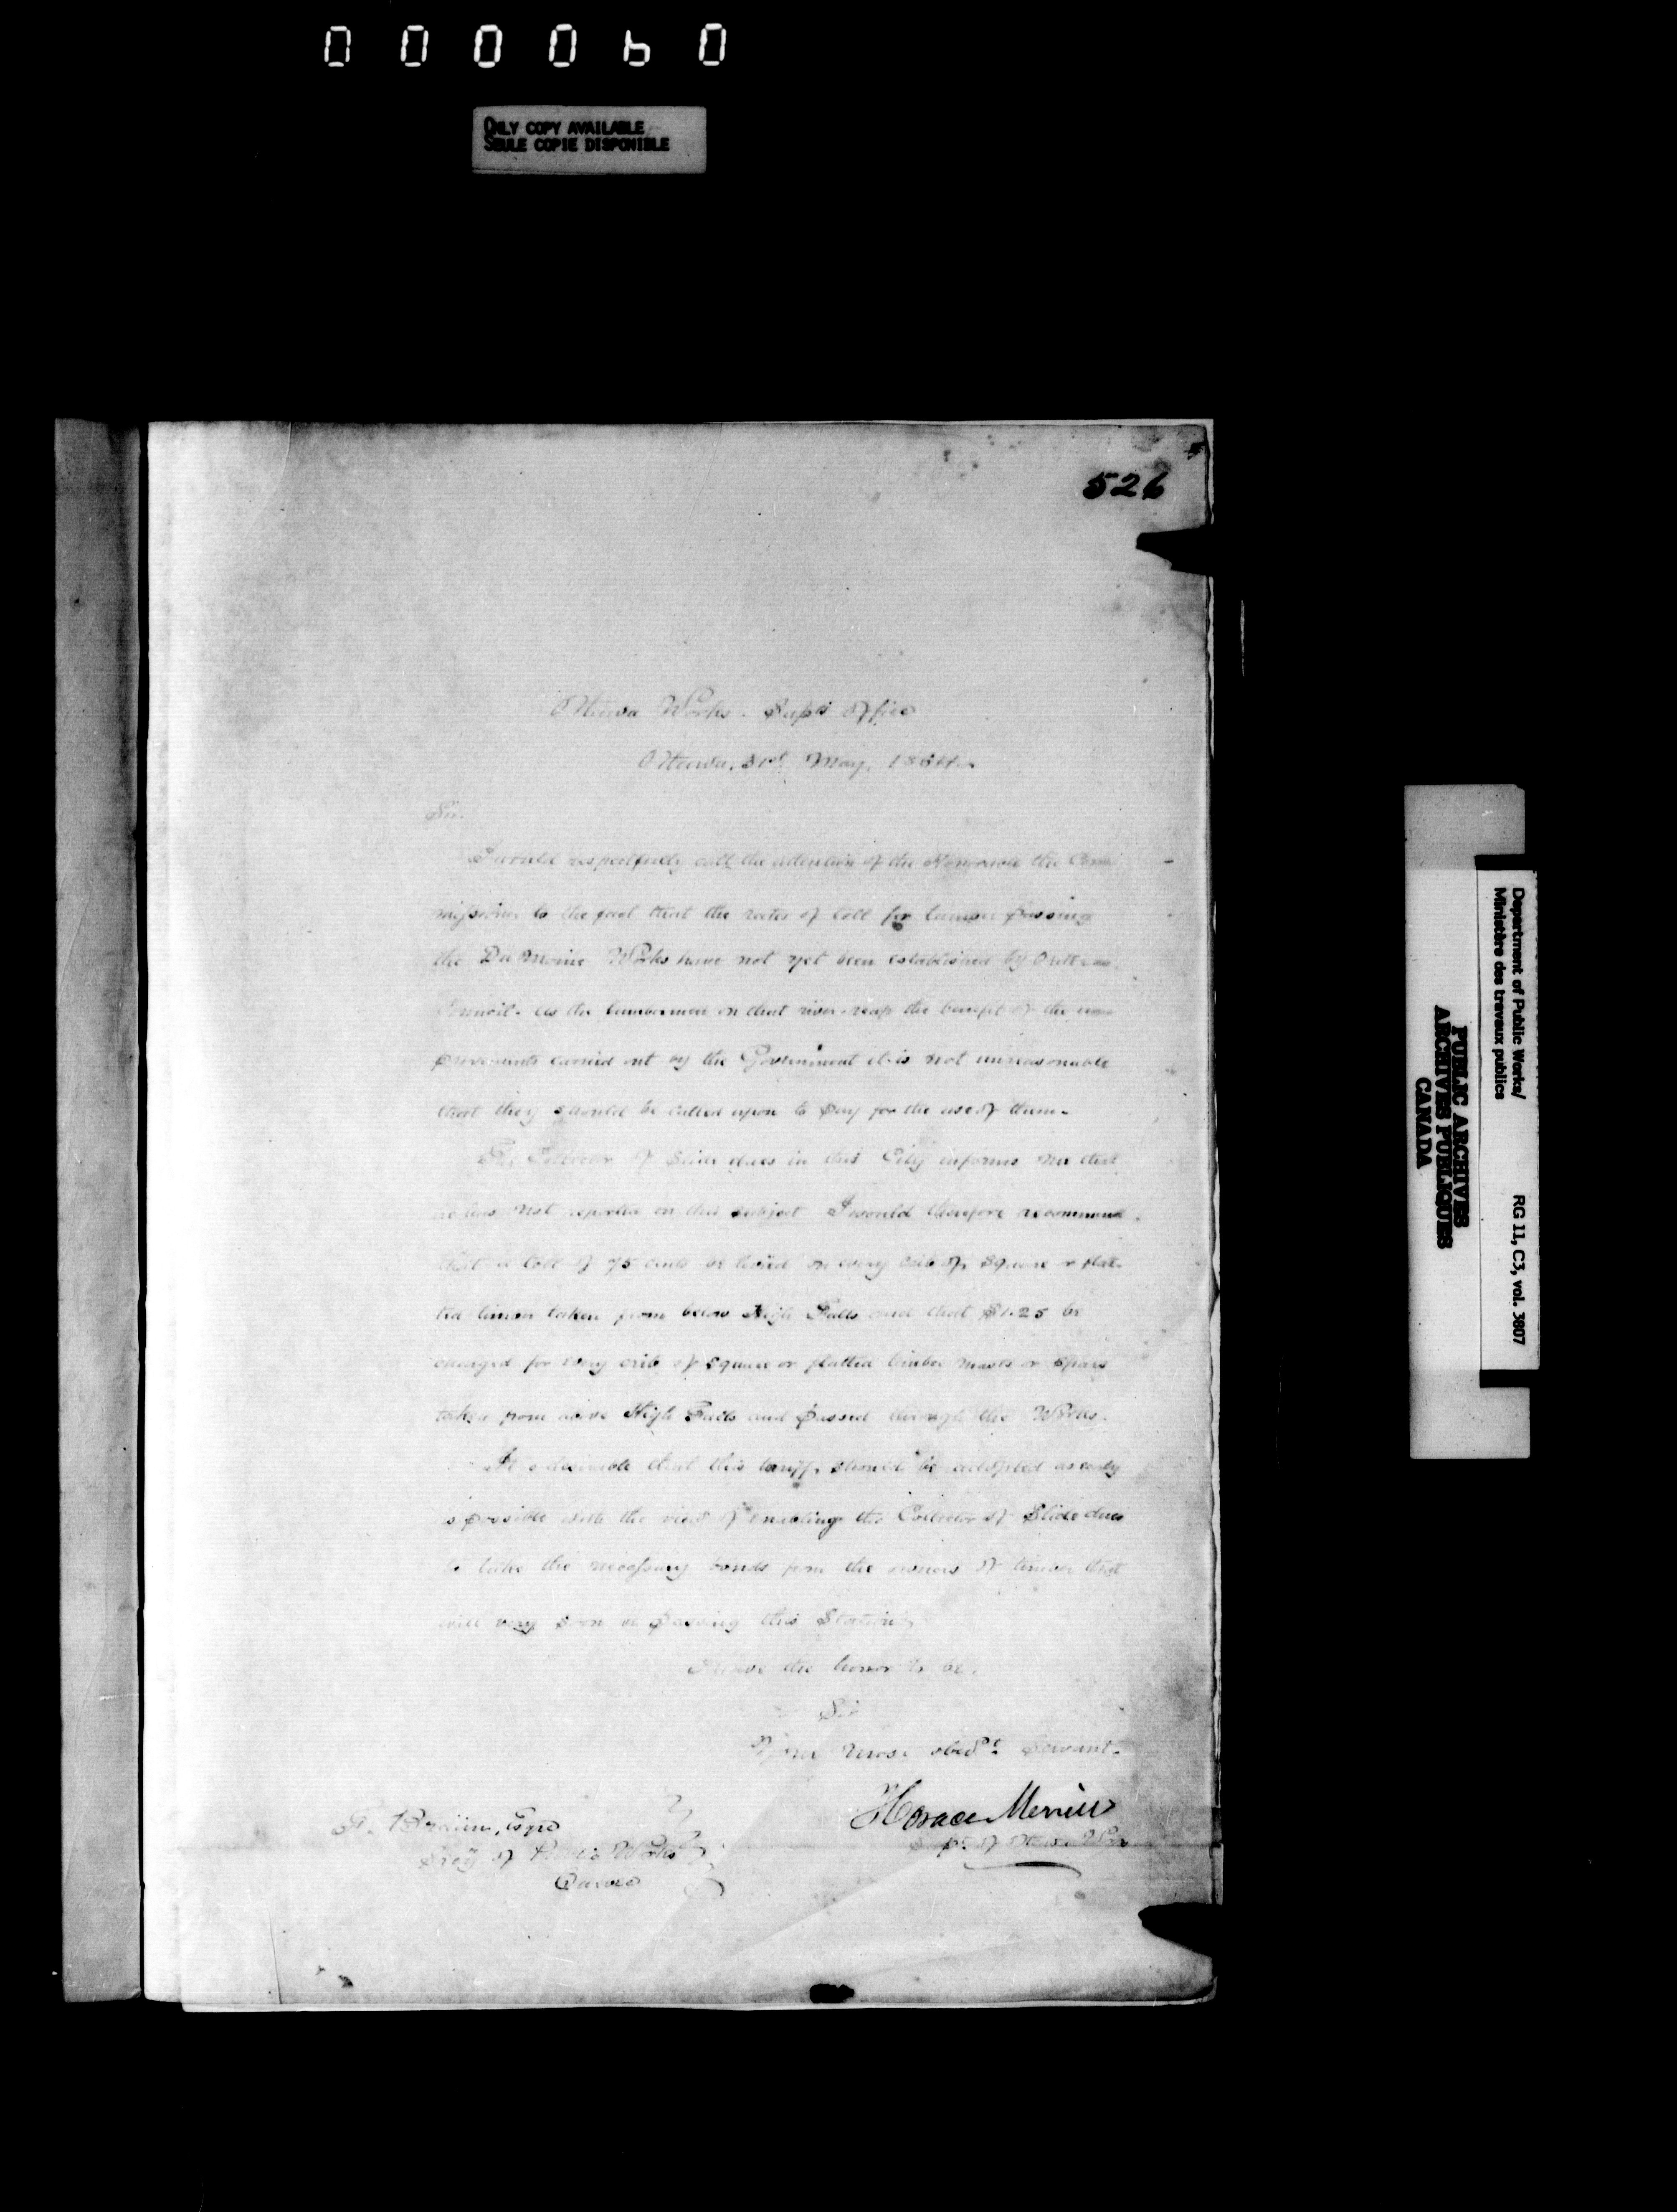 000060
ONLY COPY AVAILABLE
SEULE COPIE DISPONIBLE
526
Ottawa Works. Supts Office
Ottawa, 31st May, 1864
Sir.
I would respectfully call the attention of the Honorable the Com
missioner to the fact that the rates of toll for timber passing
the Du Moine Works have not yet been established by Order in
Council. As the lumbermen on that river reap the benefit of the im
provements carried out by the Government it is not unreasonable
that they should be called upon to pay for the use of them.
The Collector of Slide dues in this City informs me that
he has not reported on this subject I would therefore recommend
that a toll of 75 cents be levied on every crib of Square or flat
ted timber taken from below High Falls and that $1.25 be
charged for every crib of square or flatted timber masts or spars
taken from above High Falls and passed through the Works.
It is desirable that this tariff should be adopted as early
as possible with the view of enabling the Collector of Slide dues
to take the necessary bonds from the owners of timber that
will very soon be passing this Station.
I have the honor to be.
Sir
Your most obedt. Servant.
Horace Merrill
Supt. of Ottawa Wks
Braun, Esqre
Secy of Public Works
Quebec
Department of Public Works/
Ministère des travaux publics
RG 11, C3, vol. 3807
PUBLIC ARCHIVES
ARCHIVES PUBLIQUES
CANADA